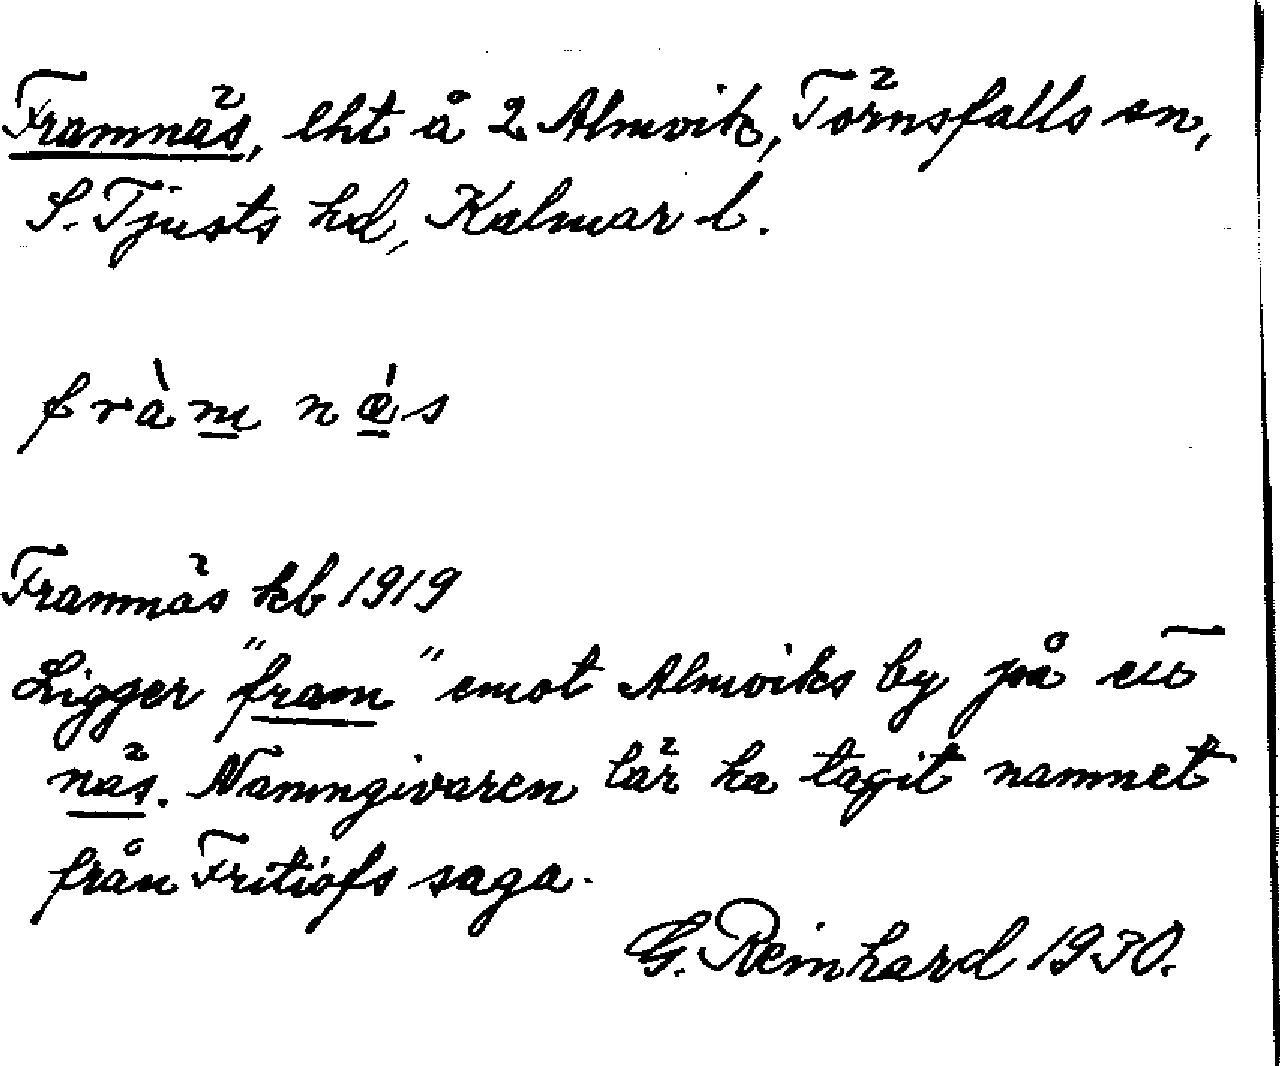 Framnäs, lht å 2 Almvik, Törnsfalls sn,
S. Tjusts hd, Kalmar l.
fràm næ̀s
Framnäs kb 1919
Ligger "fram" emot Almviks by på ett
näs. Namngivaren lär ha tagit namnet
från Fritiofs saga.
G. Reinhard 1930.